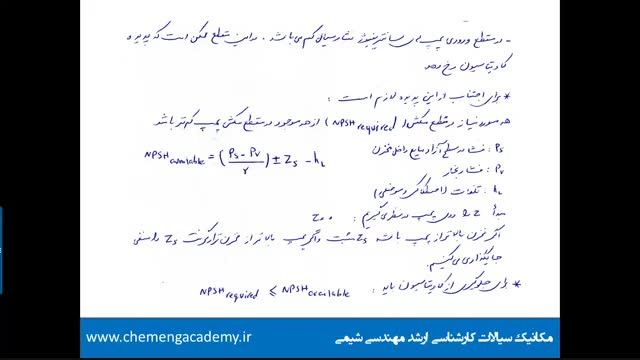 - در مقطع ورودی پمپ های سانتریفیوژ فشار سیال کم می باشد. در این مقطع ممکن است که پدیده
کاویتاسیون رخ دهد
* برای اجتناب از این پدیده لازم است:
هد مورد نیاز در مقطع مکش (NPSH required) از هد موجود در مقطع مکش پمپ کمتر باشد
NPSH available = (Ps - Pv / r) ± Zs - hL
Ps: فشار در سطح آزاد مایع داخل مخزن
Pv: فشار بخار
hL: تلفات (اصطکاکی و موضعی)
مبدأ Z را روی پمپ در نظر می گیریم: Z=0
اگر مخزن بالاتر از پمپ باشد Zs مثبت و اگر پمپ بالاتر از مخزن قرار گرفت Zs را منفی
جایگذاری می کنیم.
* برای جلوگیری از کاویتاسیون باید: NPSH required ≤ NPSH available
www.chemengacademy.ir
مکانیک سیالات کارشناسی ارشد مهندسی شیمی